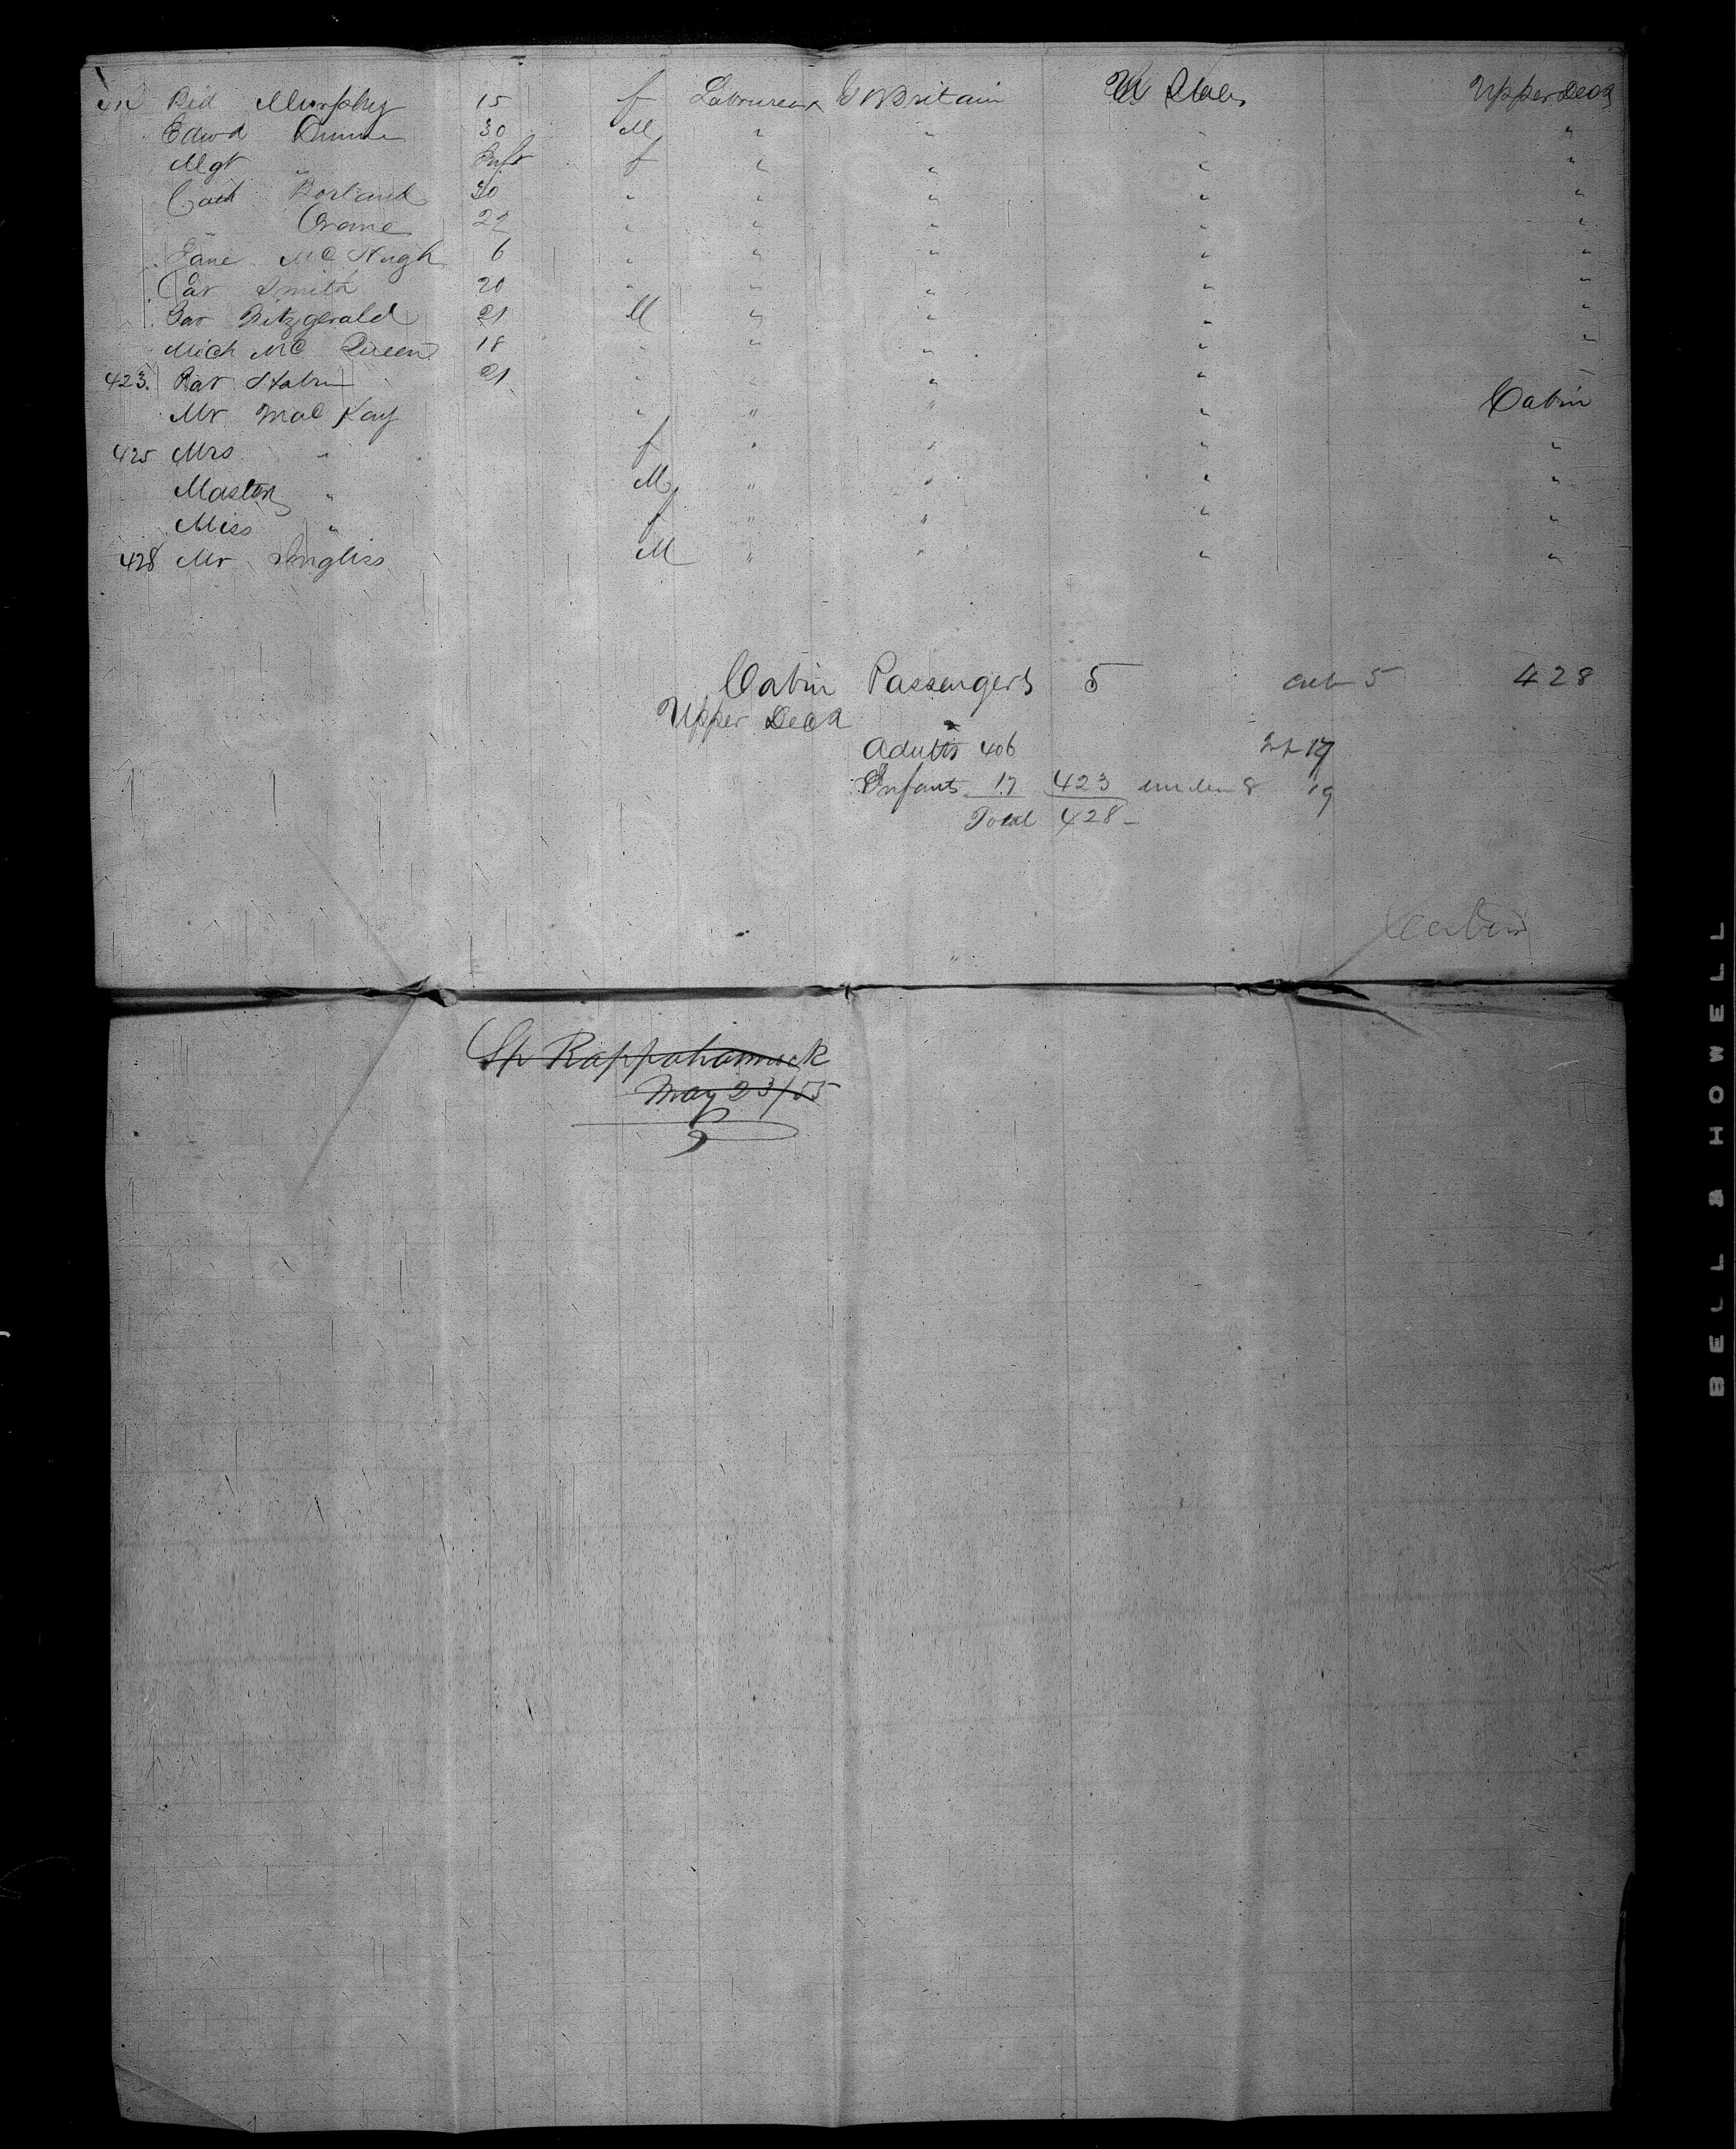 Bid Murphy 15 f Labourers G Britain U States Upper Deck
Edwd 30 M " " " "
Mgt " Inft f " " " "
Cath Borland 30 " " " " "
" Crome 22 " " " " "
Jane Mc Hugh 6 " " " " "
Smith 20 " " " " "
Fitzgerald 21 M " " " "
Mich Mc Queen 18 " " " " "
423. Pat 21 " " " " "
Mr Mac Kay " " " " Cabin
425 Mrs " f " " " "
Master " M " " " "
Miss " f " " " "
428 Mr Ingliss M " " " "
Cabin Passengers 5 cab 5 428
Upper Deck
Adults 406 Inf 17
Infants 17 423 under 8 19
Total 428 -
Cabin
Sp Rappahannock
May 23/55
BELL & HOWELL